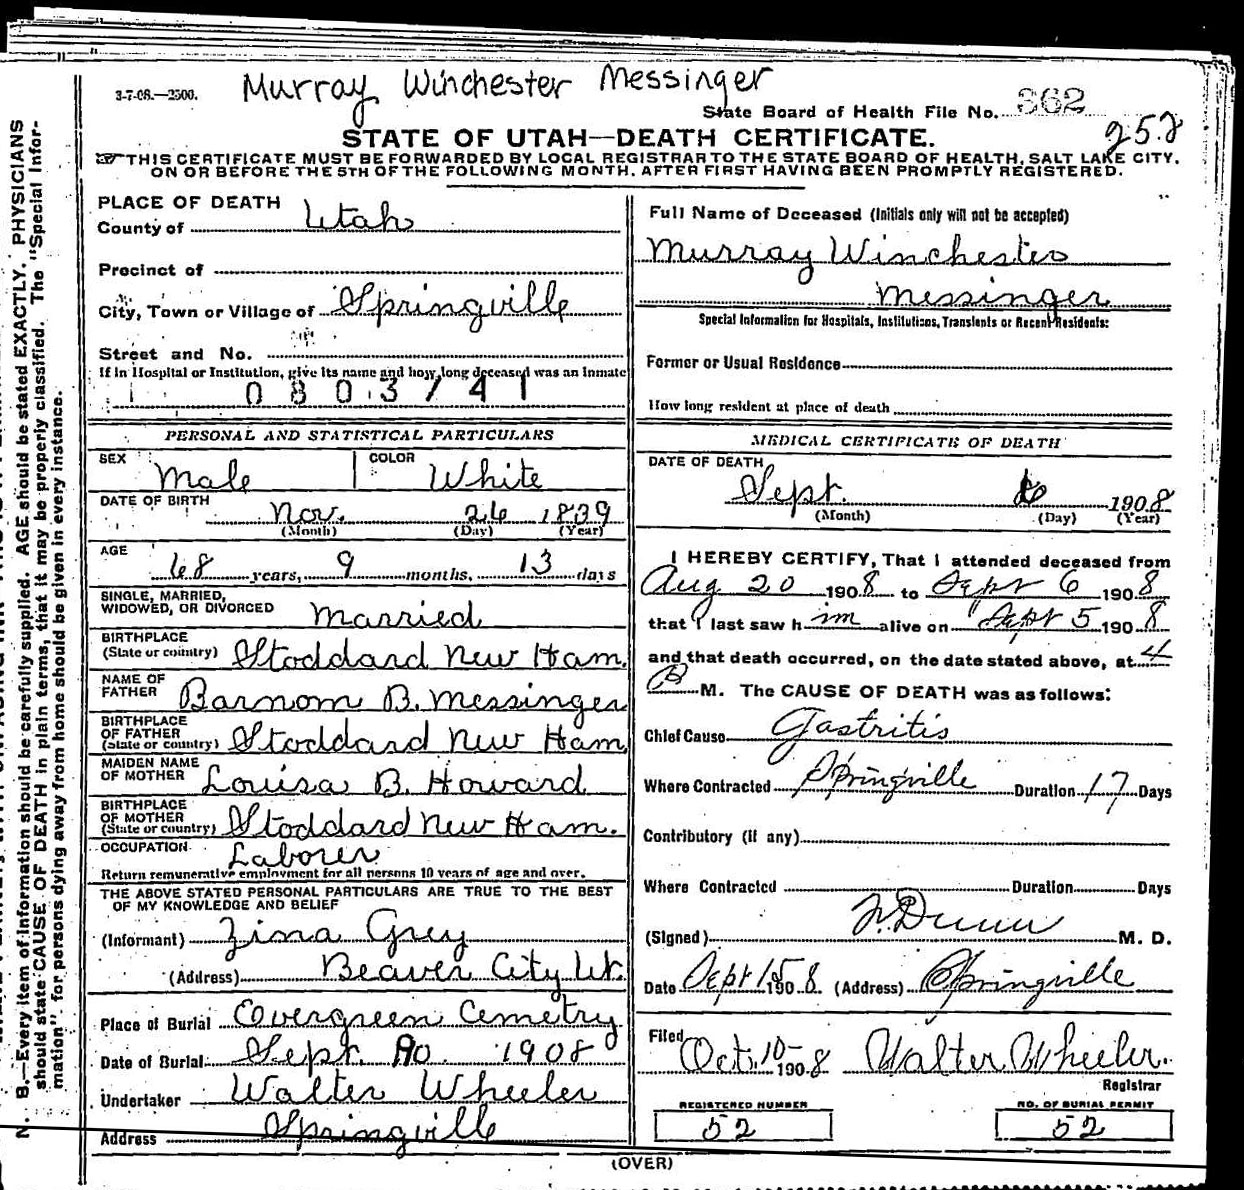 Murray Winchester Messinger
3-7-08.—2500.
State Board of Health File No. 362
252
STATE OF UTAH—DEATH CERTIFICATE.
THIS CERTIFICATE MUST BE FORWARDED BY LOCAL REGISTRAR TO THE STATE BOARD OF HEALTH, SALT LAKE CITY,
ON OR BEFORE THE 5TH OF THE FOLLOWING MONTH, AFTER FIRST HAVING BEEN PROMPTLY REGISTERED.
N. B.—Every item of information should be carefully supplied. AGE should be stated EXACTLY. PHYSICIANS
should state CAUSE OF DEATH in plain terms, that it may be properly classified. The "Special Infor-
mation" for persons dying away from home should be given in every instance.
PLACE OF DEATH
County of Utah
Precinct of
City, Town or Village of Springville
Street and No.
If in Hospital or Institution, give its name and how long deceased was an inmate
0 8 0 3 7 4 1
PERSONAL AND STATISTICAL PARTICULARS
SEX Male COLOR White
DATE OF BIRTH
Nov. 26 1839
(Month) (Day) (Year)
AGE
68 years, 9 months, 13 days
SINGLE, MARRIED,
WIDOWED, OR DIVORCED Married
BIRTHPLACE
(State or country) Stoddard New Ham.
NAME OF
FATHER Barnom B. Messinger
BIRTHPLACE
OF FATHER
(State or country) Stoddard New Ham
MAIDEN NAME
OF MOTHER Louisa B. Howard
BIRTHPLACE
OF MOTHER
(State or country) Stoddard New Ham.
OCCUPATION
Laborer
Return remunerative employment for all persons 10 years of age and over.
THE ABOVE STATED PERSONAL PARTICULARS ARE TRUE TO THE BEST
OF MY KNOWLEDGE AND BELIEF
(Informant) Zina Grey
(Address) Beaver City Ut.
Place of Burial Evergreen Cemetry
Date of Burial Sept. 10 1908
Undertaker Walter Wheeler
Address Springville
Full Name of Deceased (Initials only will not be accepted)
Murray Winchester
Messinger
Special Information for Hospitals, Institutions, Transients or Recent Residents:
Former or Usual Residence
How long resident at place of death
MEDICAL CERTIFICATE OF DEATH
DATE OF DEATH
Sept. 6 1908
(Month) (Day) (Year)
I HEREBY CERTIFY, That I attended deceased from
Aug 20 1908 to Sept 6 1908
that I last saw h im alive on Sept 5 1908
and that death occurred, on the date stated above, at 4
P M. The CAUSE OF DEATH was as follows:
Chief Cause Gastritis
Where Contracted Springville Duration 17 Days
Contributory (if any)
Where Contracted Duration Days
(Signed) F. Dunn M. D.
Date Sept 15 1908 (Address) Springville
Filed Oct. 10— 1908 Walter Wheeler.
Registrar
REGISTERED NUMBER
52
NO. OF BURIAL PERMIT
52
(OVER)